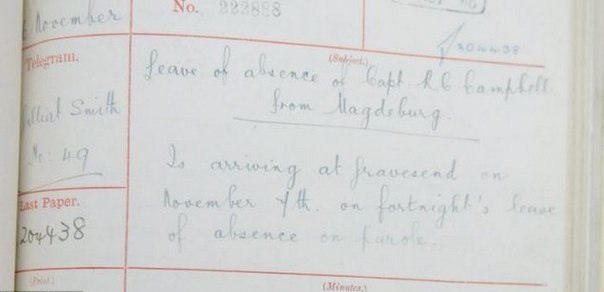 November
No. 222888
Telegram.
(Subject.)
Leave of absence of Capt R C Campbell
from Magdeburg.
Smith
No: 49
Is arriving at Gravesend on
November 7th. on fortnight's leave
of absence on parole.
Last Paper.
204438
(Print)
(Minutes.)